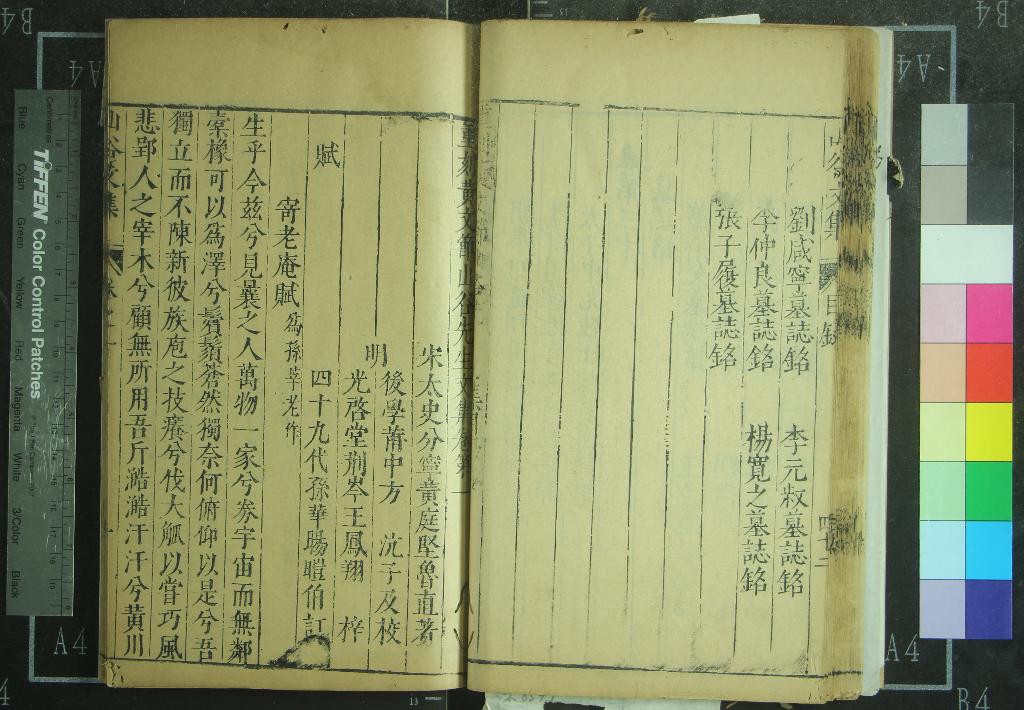 劉咸寧墓誌銘 李元叔墓誌銘
李仲良墓誌銘 楊寬之墓誌銘
張子履墓誌銘
重刻黃文節山谷先生文集卷第一
宋太史分寧黃庭堅魯直著
明 後學莆中方 沆子及校
光啓堂荆岑王鳳翔 梓
四十九代孫華暘暟伯訂
賦
寄老庵賦 爲孫莘老作
生乎今茲兮見曩之人萬物一家兮券宇宙而無鄰
橐橡可以爲澤兮鬢鬚蒼然獨奈何俯仰以是兮吾
獨立而不陳新彼族庖之技癢兮伐大觚以嘗巧風
悲郢人之宰木兮顧無所用吾斤澔澔汗汗兮黃川
山谷文集
TIFFEN Color Control Patches
Blue Cyan Green Yellow Red Magenta White 3/Color Black
B4
A4
A4
B4
A4
A4
B4
13